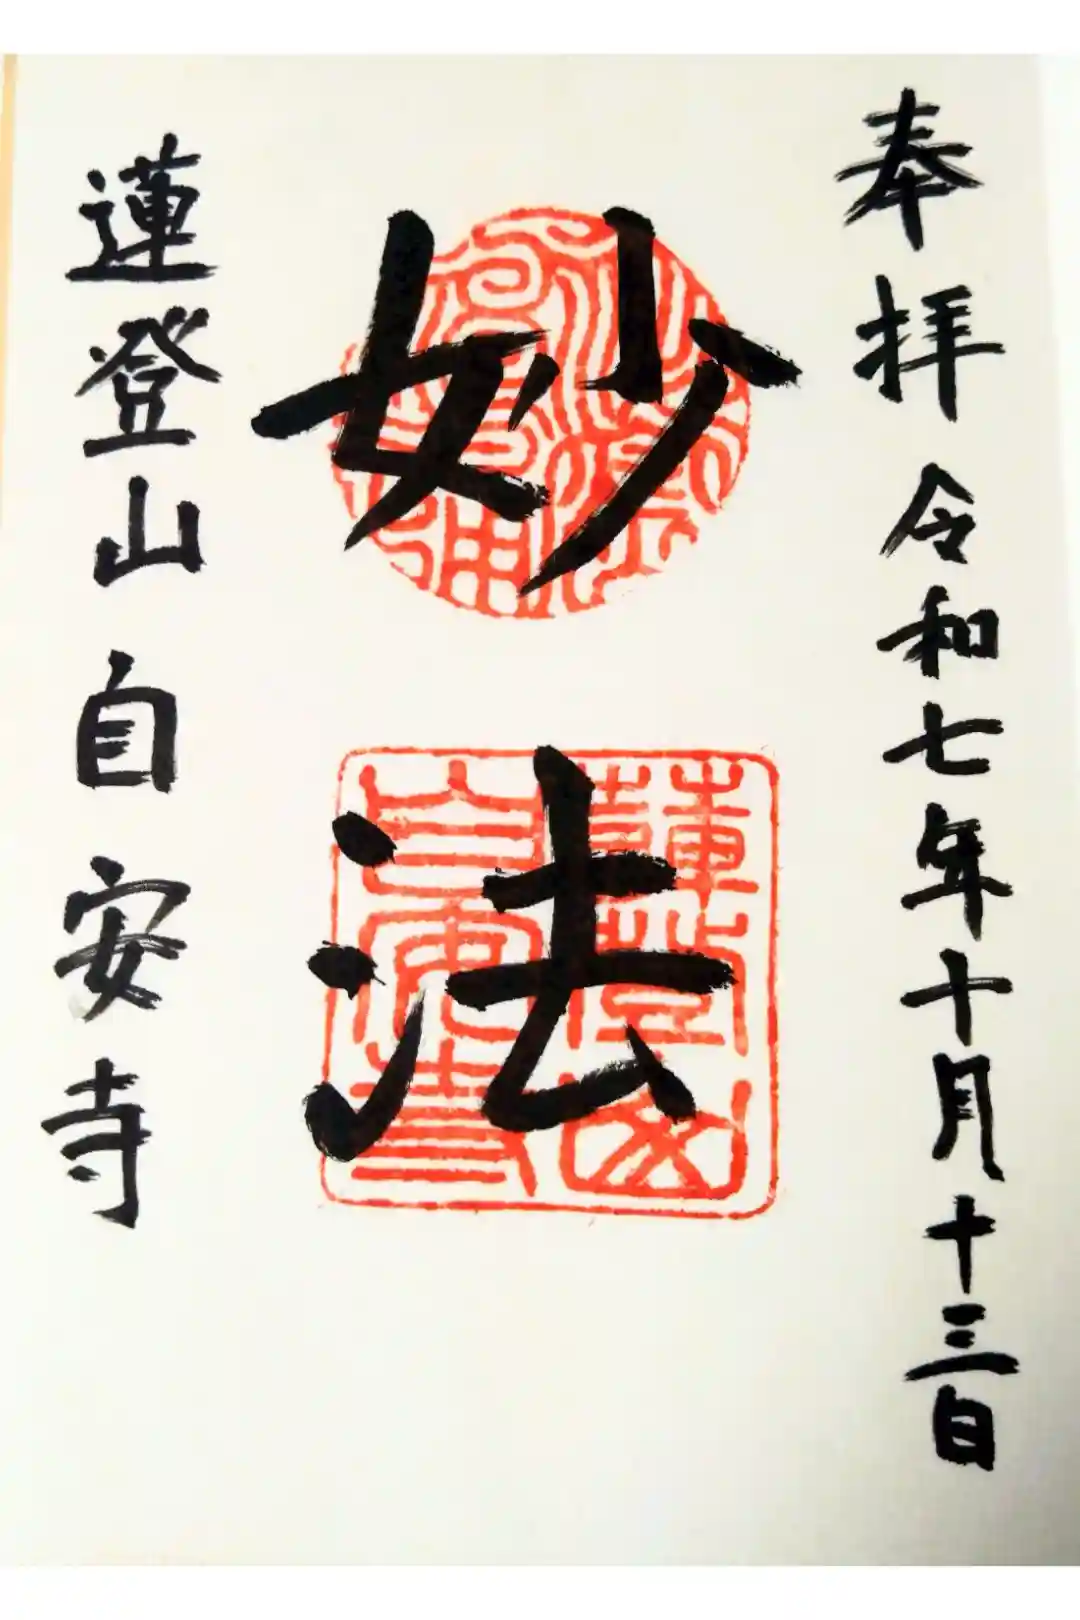 奉拝 令和七年十月十三日
妙法
蓮登山 自安寺